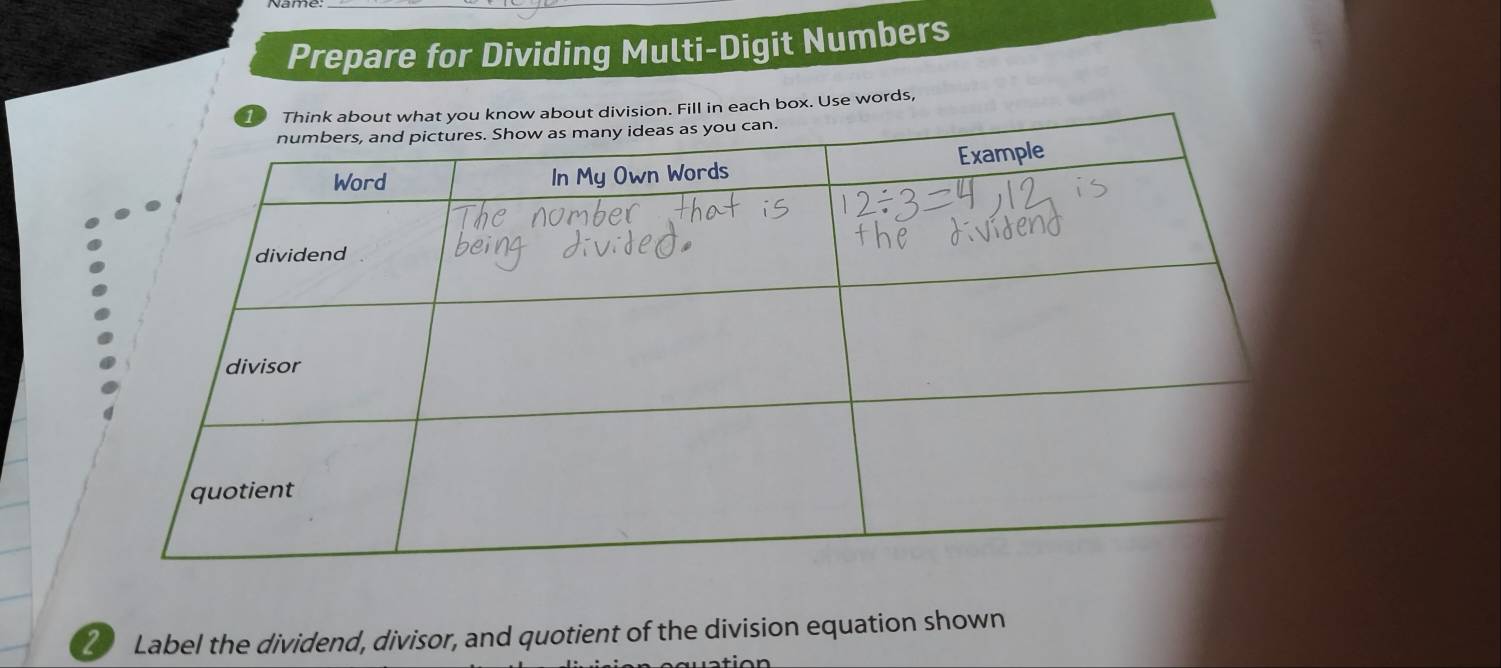 Name:
Prepare for Dividing Multi-Digit Numbers
1 Think about what you know about division. Fill in each box. Use words,
numbers, and pictures. Show as many ideas as you can.
Word In My Own Words Example
dividend
The nomber that is
being divided.
12÷3=4, 12 is
the dividend
divisor
quotient
2 Label the dividend, divisor, and quotient of the division equation shown
division equation